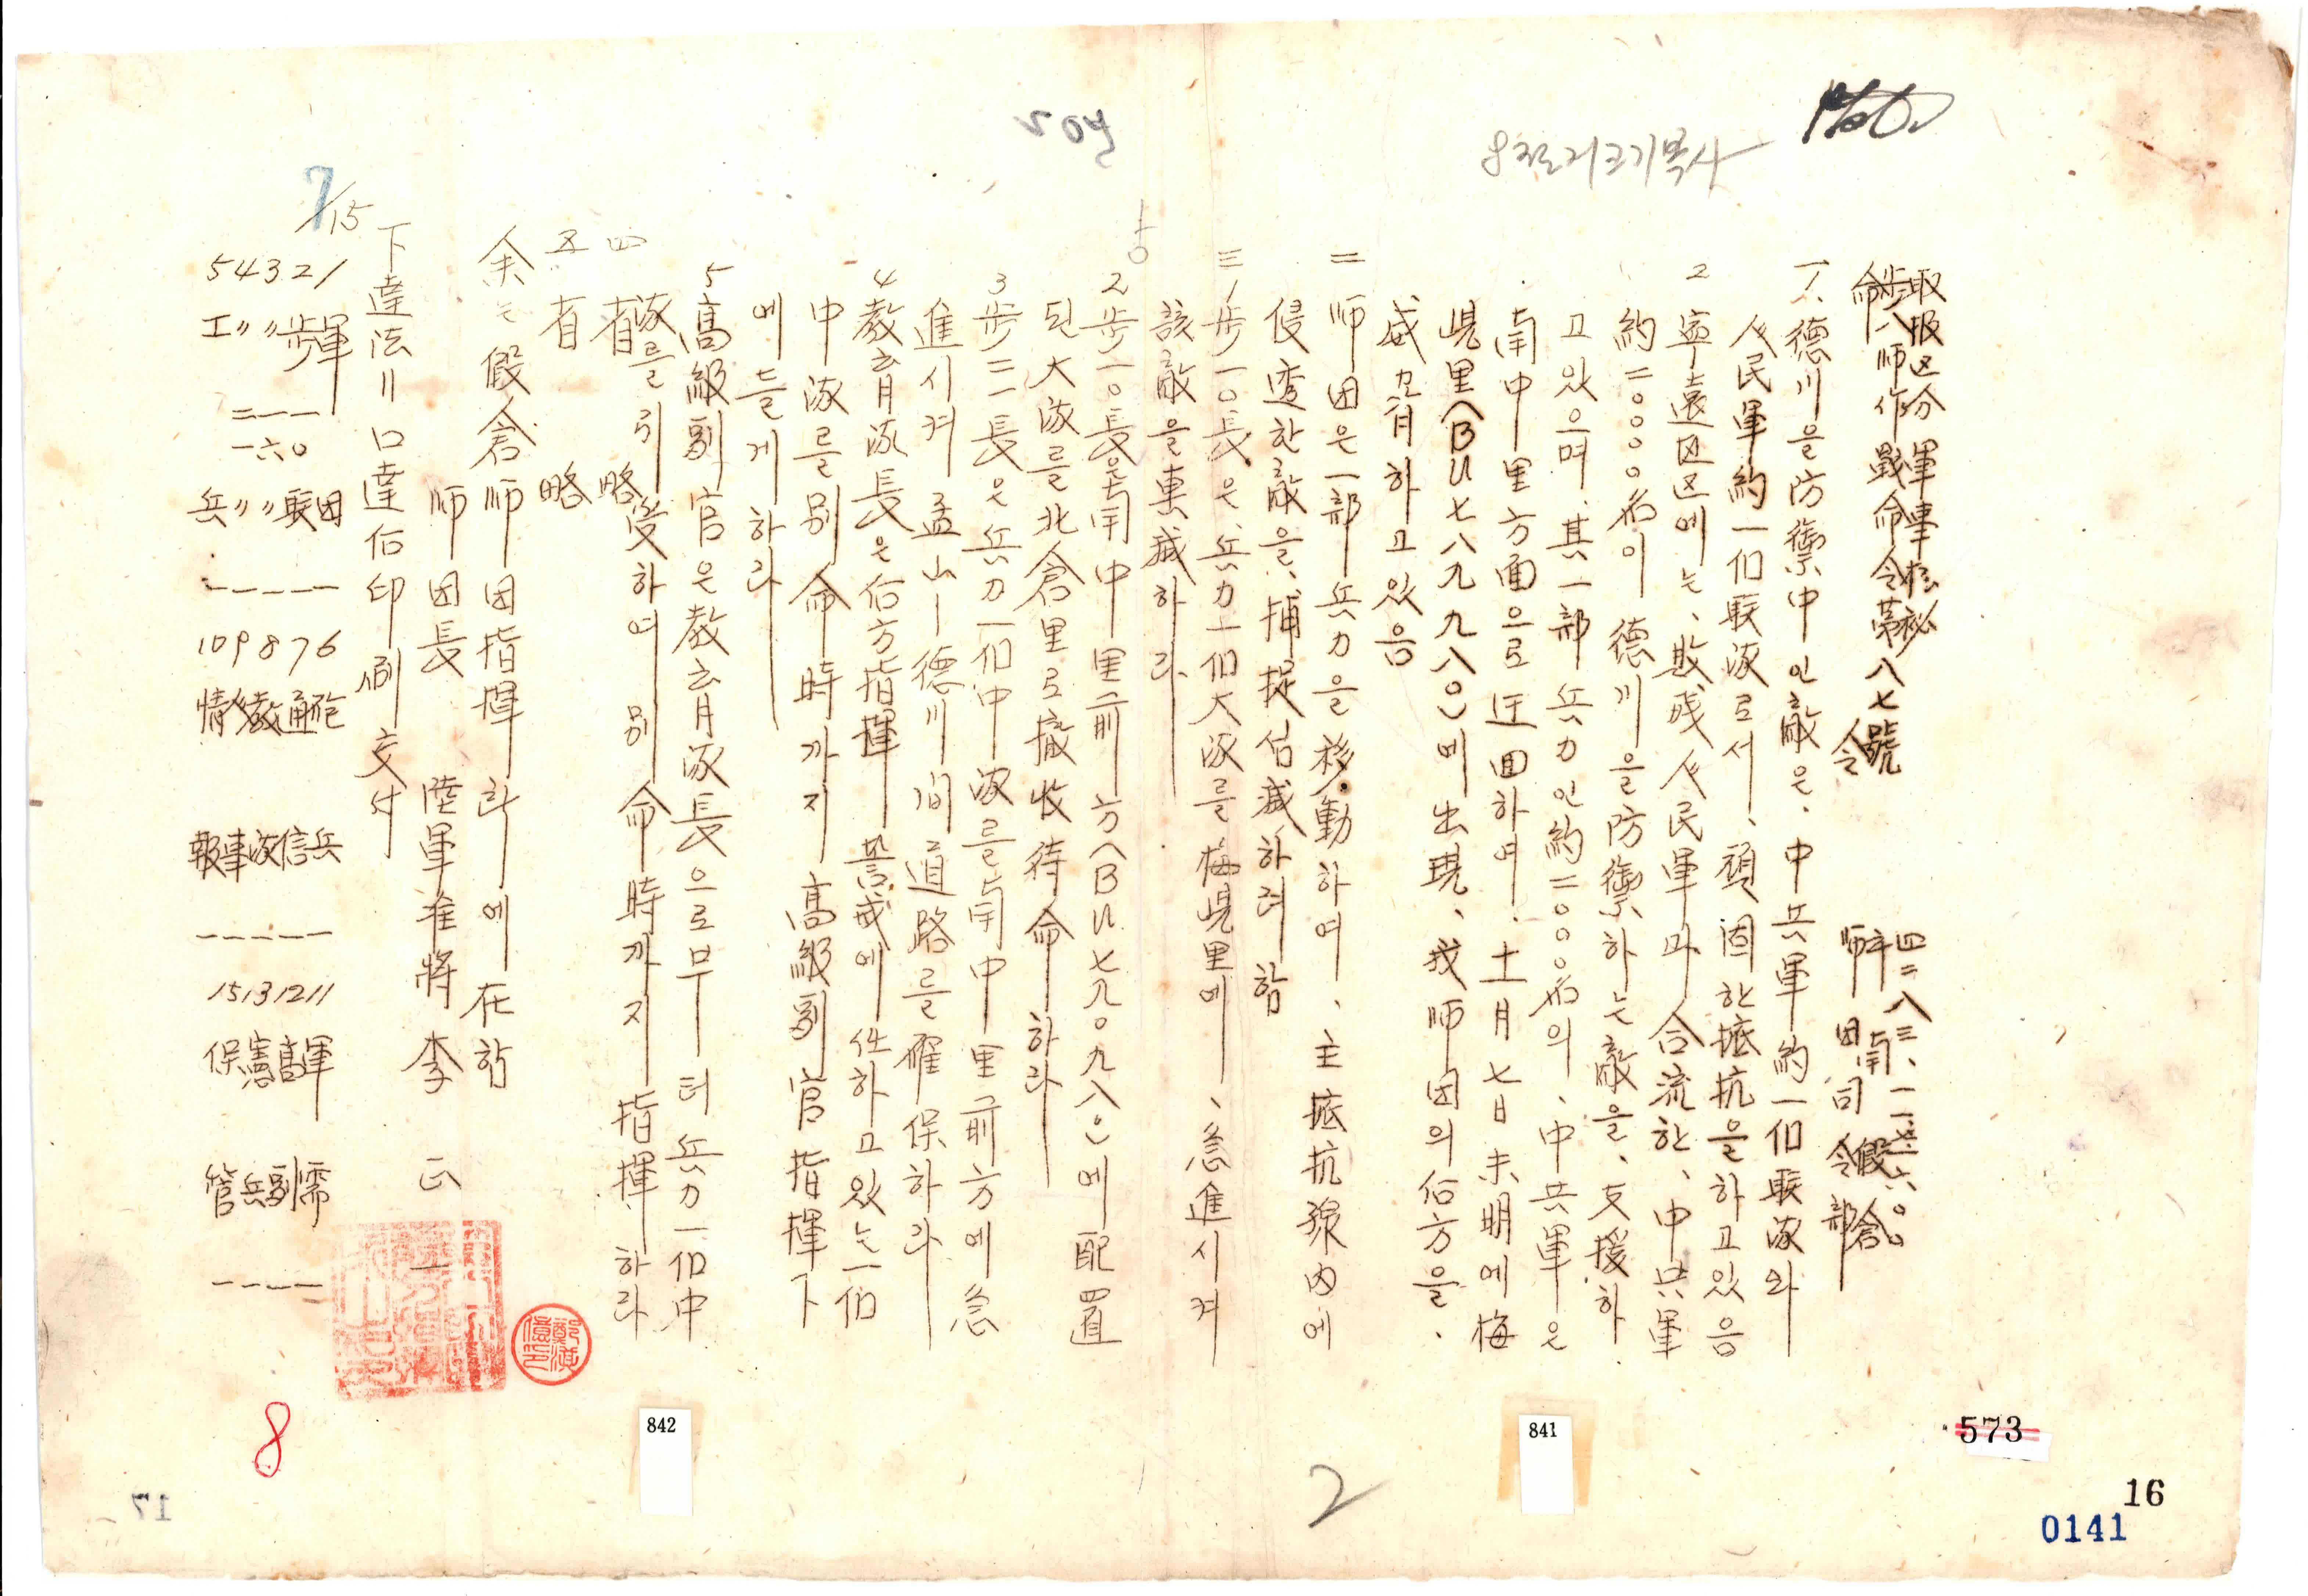 取扱区分 軍事極秘
步八師作戰命令第八七號
命令
四二八三、一一、七、一六〇〇
於 南 假倉
師團司令部
一 1、德川을防禦中인敵은、中共軍約一個聯隊와
人民軍約一個聯隊로서、頑固한抵抗을하고있음
2 寧遠區에는、敗殘人民軍과合流한、中共軍
約二〇〇〇名이德川을防禦하는敵을、支援하
고있으며、其一部兵力인約二〇〇〇名의、中共軍은
南中里方面으로迂回하여、十一月七日未明에梅
峴里(BU七八九九八〇)에出現、我師團의右方을、
威脅하고있음
二 師團은一部兵力을移動하여、主抵抗線內에
侵透한敵을、捕捉殲滅하려함
三 1 步一〇長은、兵力一個大隊를梅峴里에、急進시켜
該敵을擊滅하라
2 步一〇長은南中里前方(BU七九〇九八〇)에配置
된大隊를北倉里로撤收待命하라
3 步二一長은兵力一個中隊를南中里前方에急
進시켜孟山—德川間道路를確保하라
4 敎育隊長은右方指揮 警戒에任하고있는一個
中隊를別命時까지高級副官指揮下
에들게하라
5 高級副官은敎育隊長으로부터兵力一個中
隊를引受하여別命時까지指揮하라
四 省略
五 省略
余는假倉師團指揮所에在함
師團長 陸軍准將 李 正 一
下達法〃口達後印刷交付
7/15
1 軍團 一
2 步一〇聯 一
3 〃一六〃 一
4 〃二一〃 一
5 工兵 一
6 砲兵 一
7 通信 一
8 敎隊 一
9 人事 一
10 情報 一
11 軍需 一
12 高副 一
13 憲兵 一
15 保管 一
8
842
2
841
573
16
0141
17